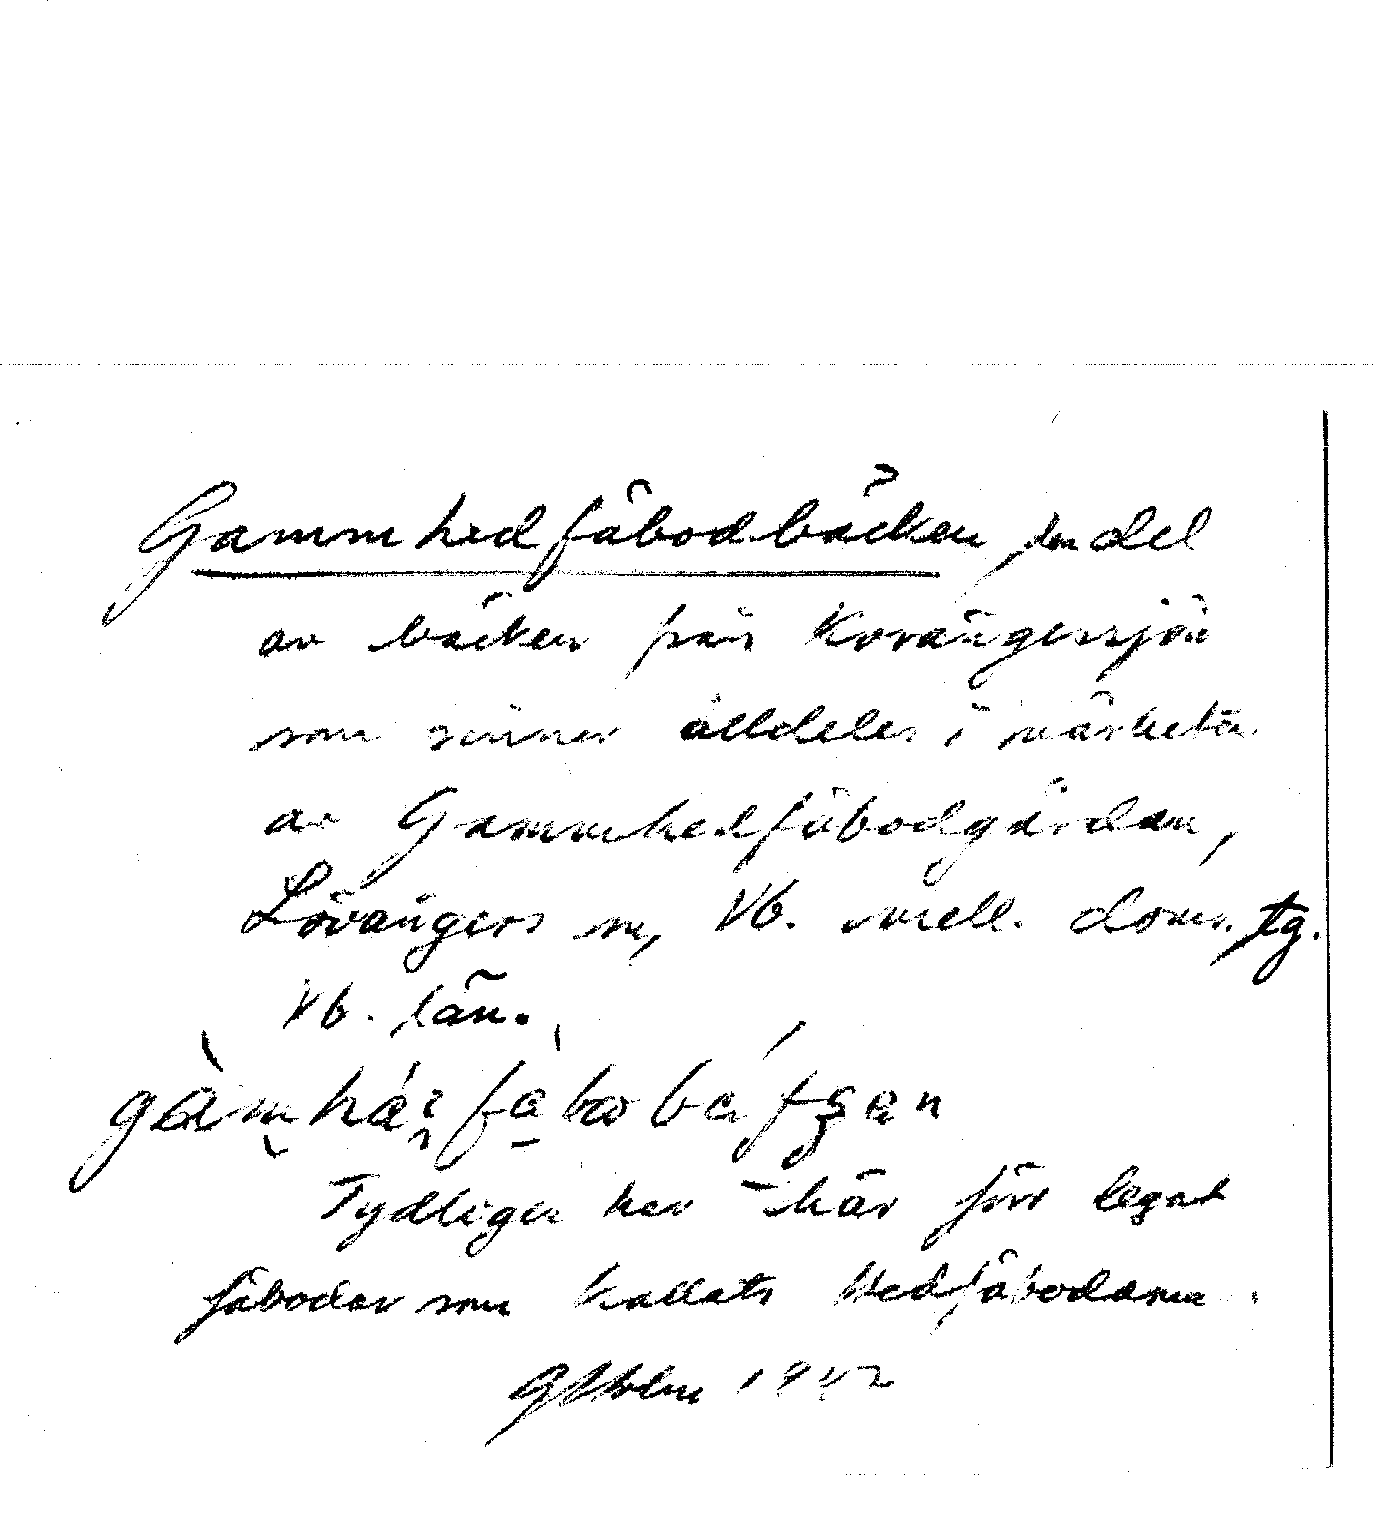 Gammhedfäbodbäcken, den del
av bäcken från Kvrängerssjön
som rinner alldeles i närheten
av Gammhedfäbodgärdan,
Lövångers sn, Vb. mell. doms. tg.
Vb. län.
Tydligen har här förr legat
fäbodar som kallats Hedfäbodarna.
1942